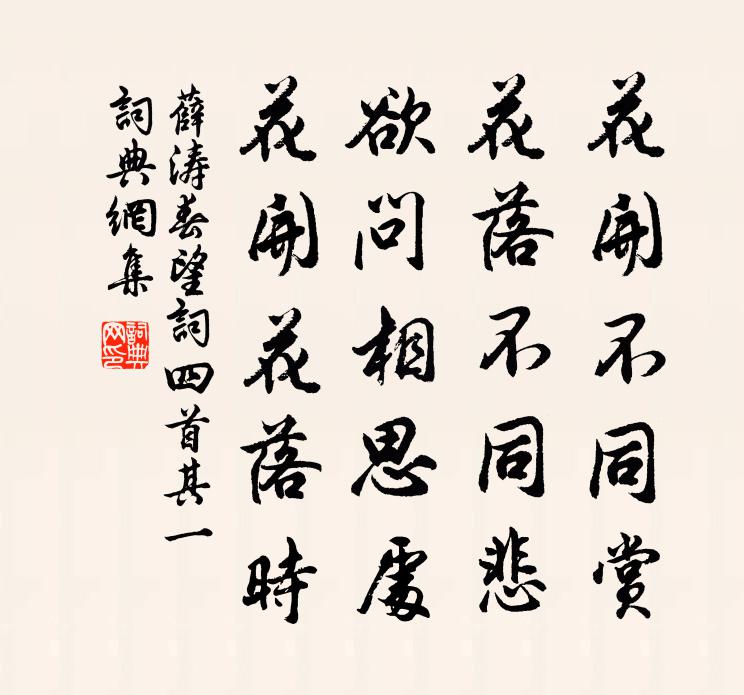 花開不同賞
花落不同悲
欲問相思處
花開花落時
薛濤春望詞四首其一
詞典網集
詞典网印